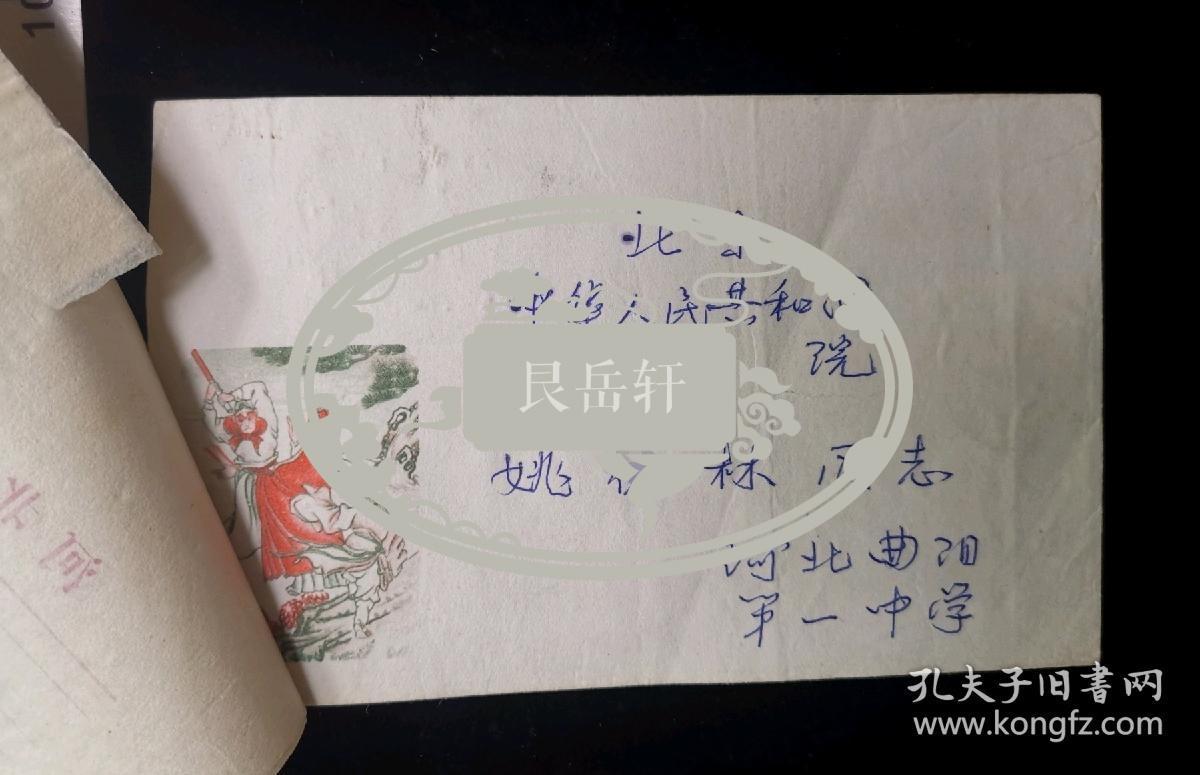 北京
中华人民共和国
院
姚 林同志
河北曲阳
第一中学
艮岳轩
孔夫子旧書网
www.kongfz.com
10